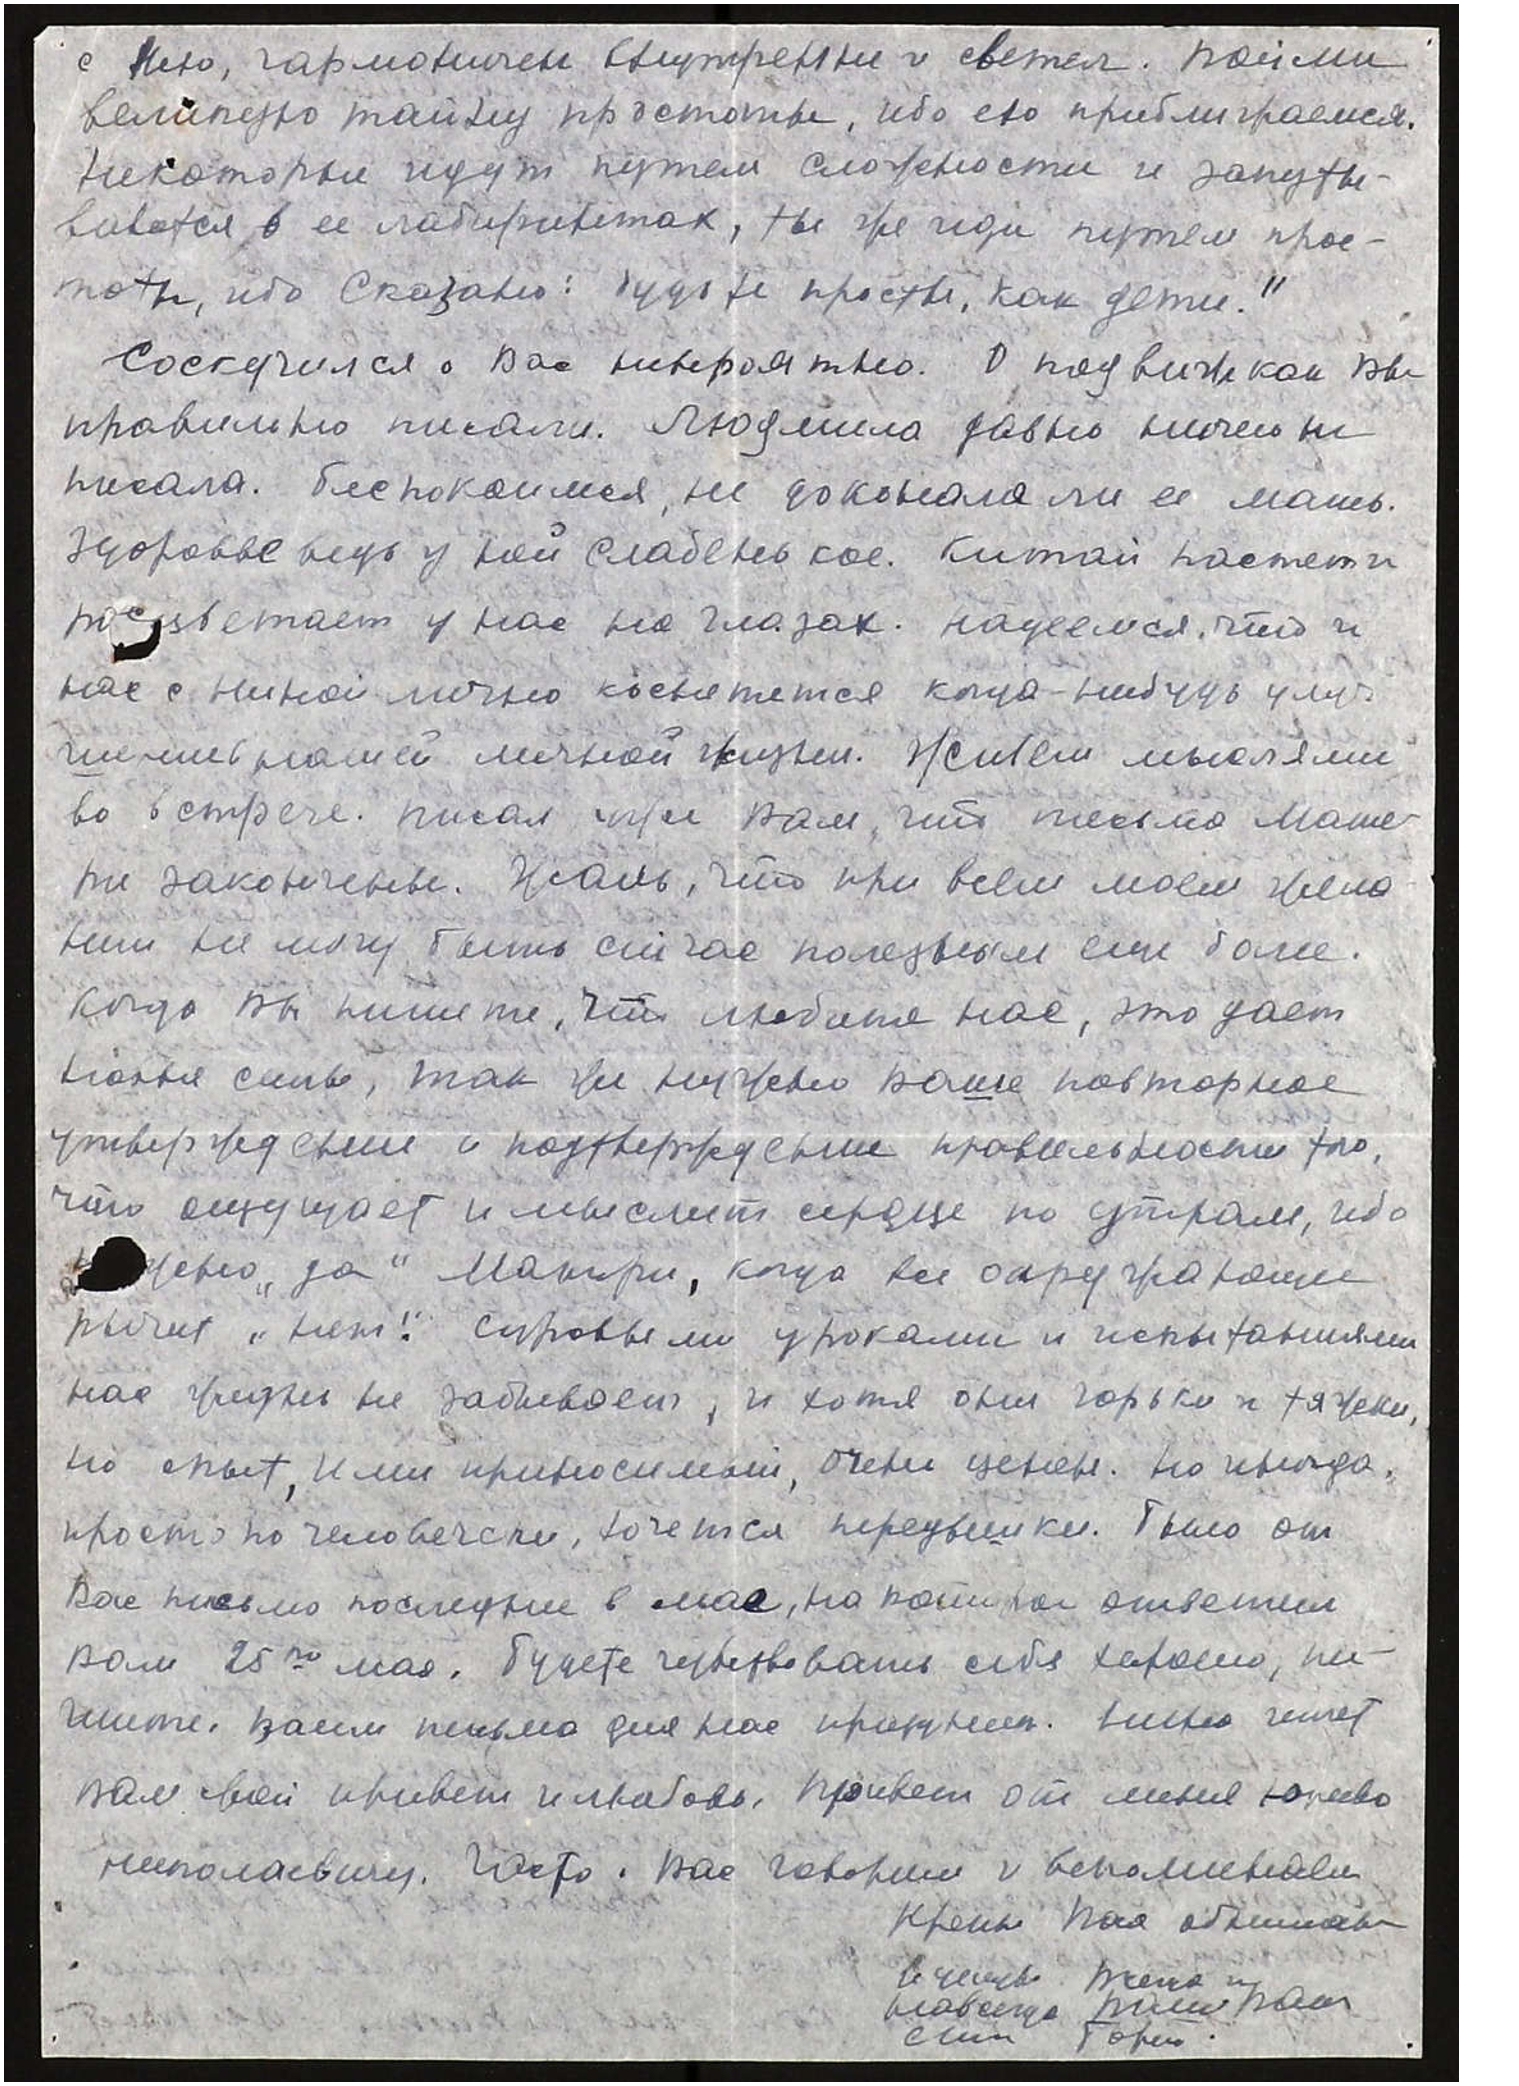 с Нею, гармоничен внутренне и светел. Пойми
великую тайну простоты, ибо ею приближаемся.
Некоторые идут путем сложности и запуты-
ваются в ее лабиринтах, ты же иди путем прос-
тоты, ибо Сказано: Будьте просты, как дети."
Соскучился о Вас невероятно. О подвижках Вы
правильно писали. Людмила давно ничего не
писала. Беспокоимся, не доконала ли ее мать.
Здоровье ведь у ней слабенькое. Китай растет и
расцветает у нас на глазах. Надеемся, что и
нас с Ниной лично коснется когда-нибудь улуч-
шение нашей личной жизни. Живем мыслями
во встрече. Писал уже Вам, что письма Мате-
ри закончены. Жаль, что при всем моем жела-
нии не могу быть сейчас полезным еще более.
Когда Вы пишете, что любите нас, это дает
новые силы, так же нужно Ваше повторное
утверждение и подтверждение правильности того,
что ощущает и мыслит сердце по утрам, ибо
нужно „да" Матери, когда все окружающее
рычит „нет"! Суровыми уроками и испытаниями
нас жизнь не забывает, и хотя они горьки и тяжки,
но опыт, ими приносимый, очень ценен. Но иногда,
просто по человечски, хочется передышки. Было от
Вас письмо последнее в мае, на которое ответил
Вам 25го мая. Будете чувствовать себя хорошо, пи-
шите. Ваши письма для нас праздник. Нина шлет
Вам свой привет и любовь. Привет от меня
Николаевичу. Часто о Вас говорим и вспоминаем
Крепко Вас обнимаем
Всегда и
навсегда Ваш Ваш
сын Борис.